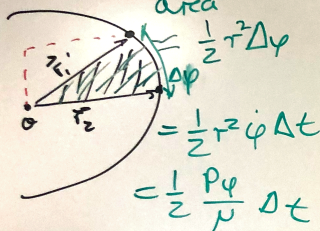 area
≈ ½ r² Δφ
r⃗₁
Δφ
r⃗₂
O
= ½ r² φ̇ Δt
= ½ Pφ/μ Δt